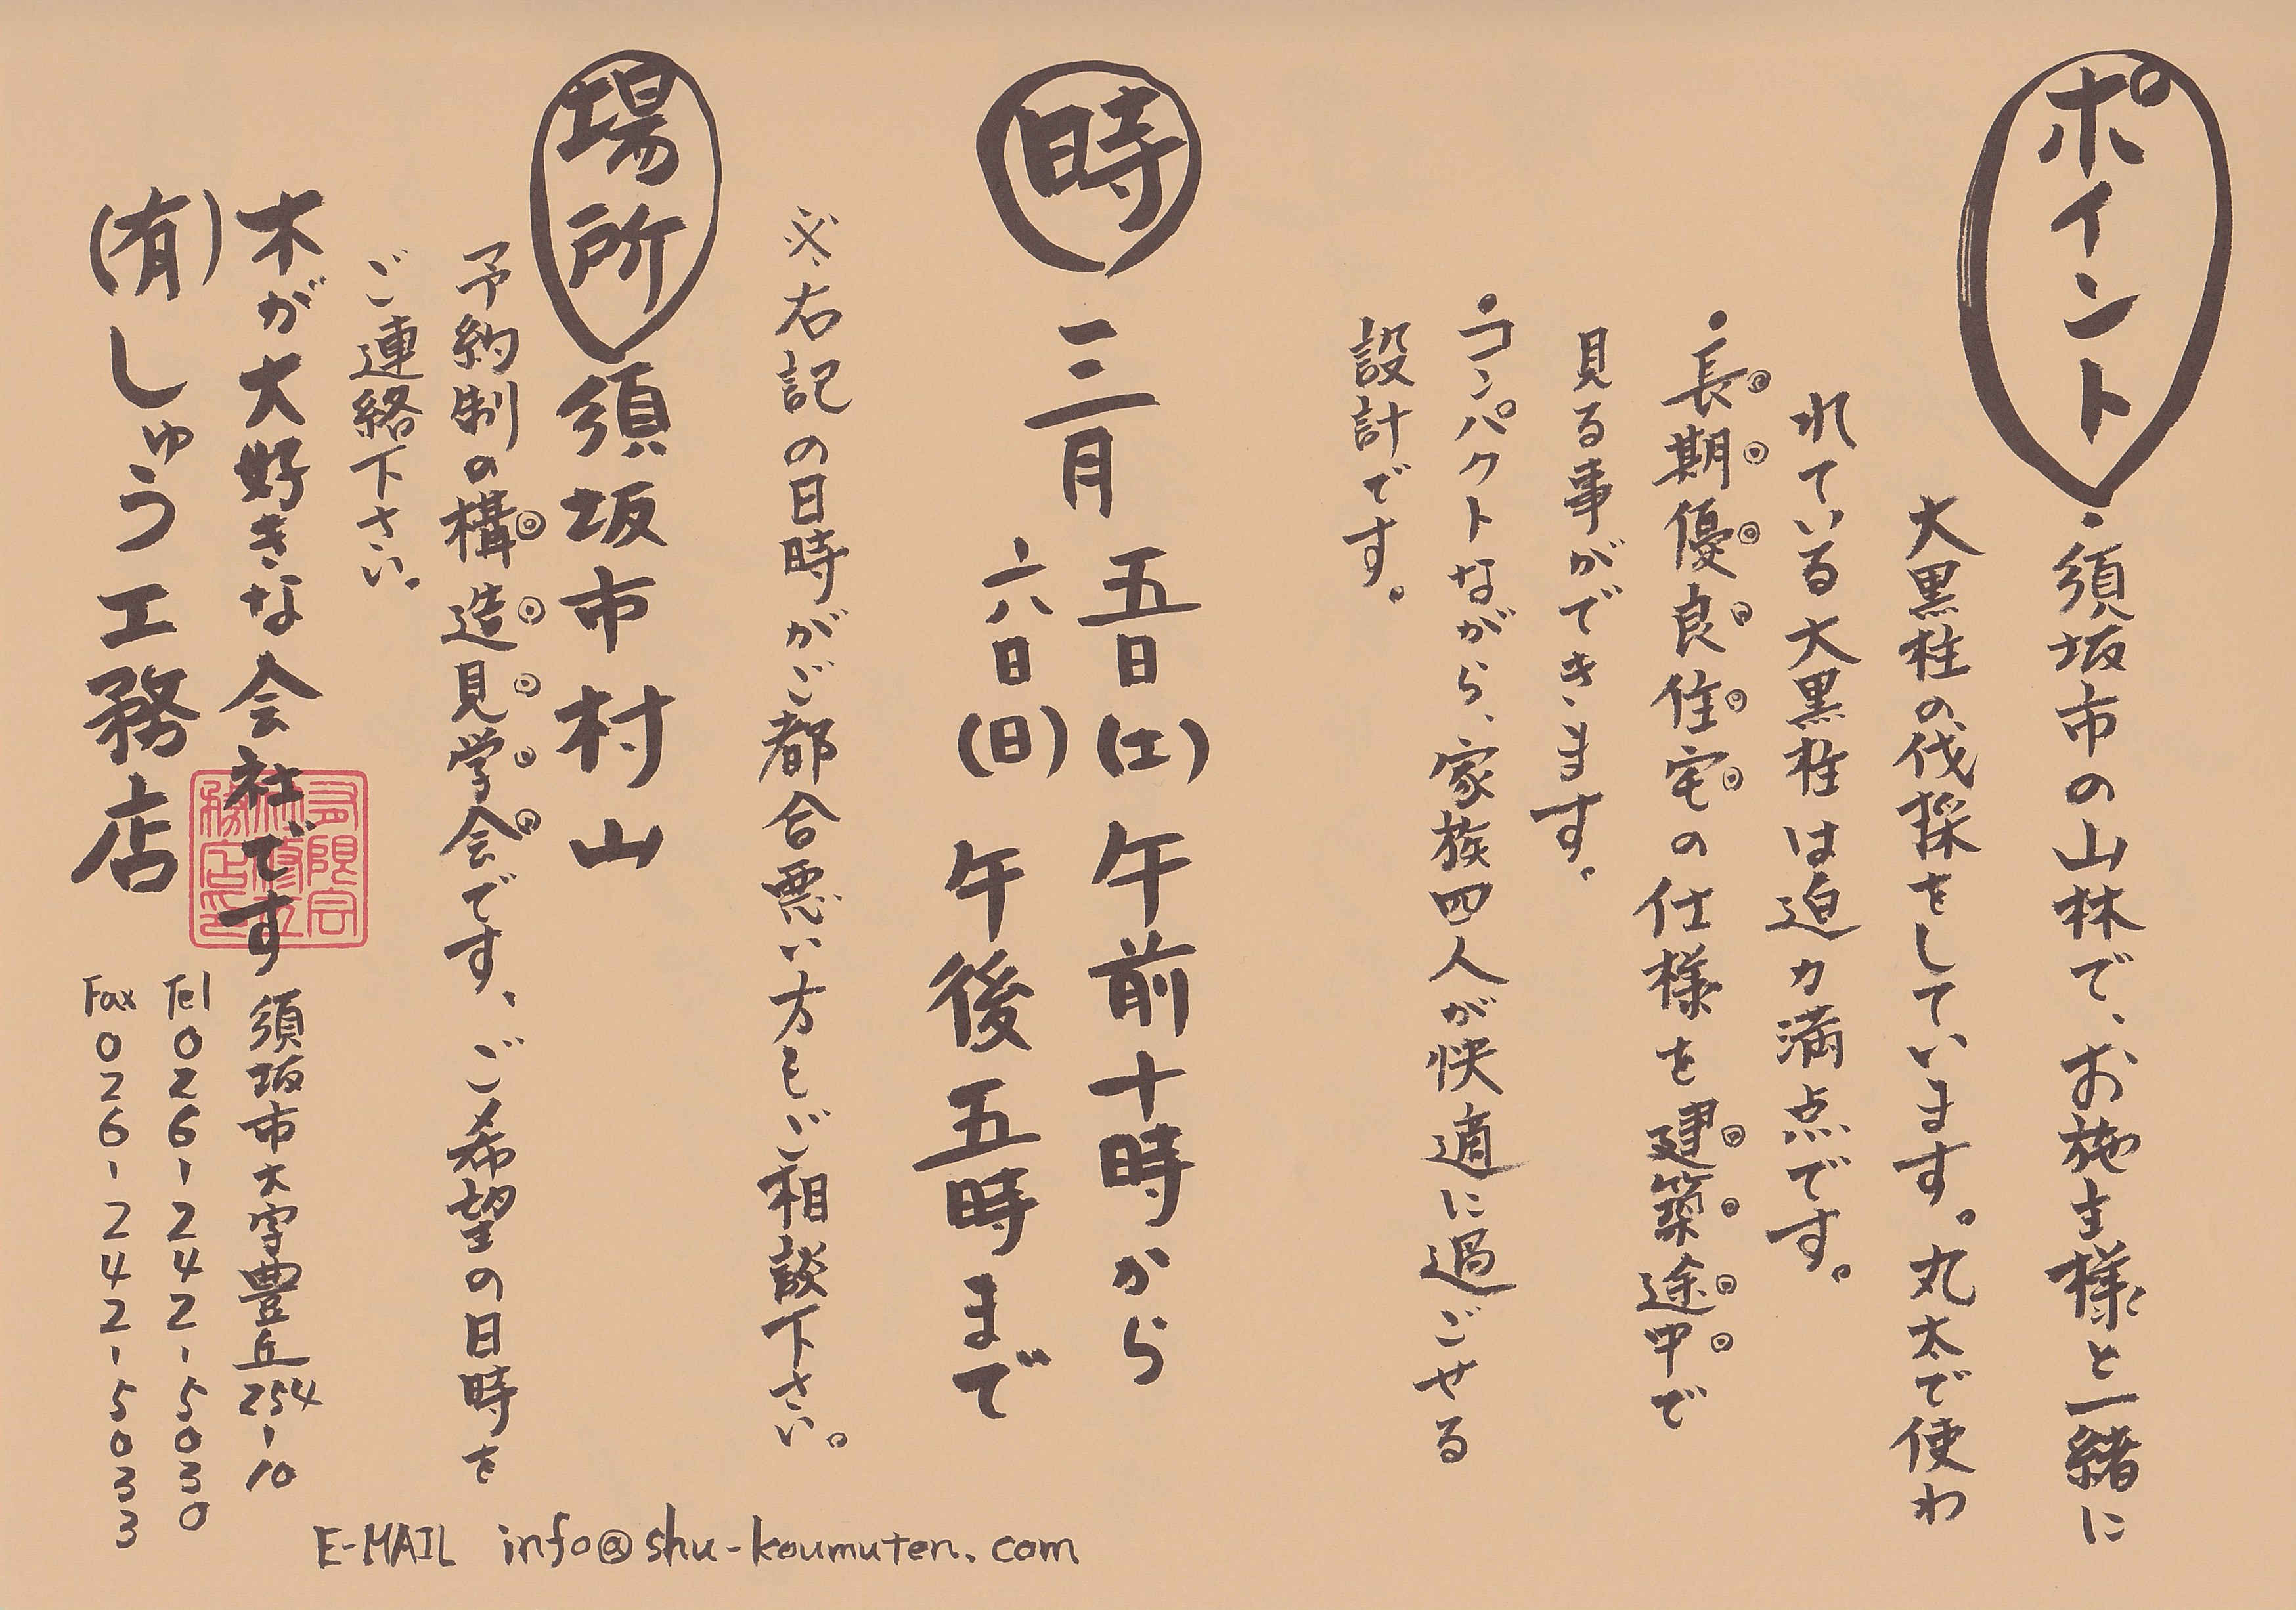 ポイント
・須坂市の山林で、お施主様と一緒に
大黒柱の伐採をしています。丸太で使わ
れている大黒柱は迫力満点です。
・長期優良住宅の仕様を建築途中で
見る事ができます。
・コンパクトながら、家族四人が快適に過ごせる
設計です。
時
三月
五日(土)午前十時から
六日(日)午後五時まで
※右記の日時がご都合悪い方もご相談下さい。
場所
須坂市村山
予約制の構造見学会です、ご希望の日時を
ご連絡下さい。
木が大好きな会社です
須坂市大字豊丘254-10
(有)しゅう工務店
Tel 026-242-5030
Fax 026-242-5033
E-MAIL info@shu-koumuten.com